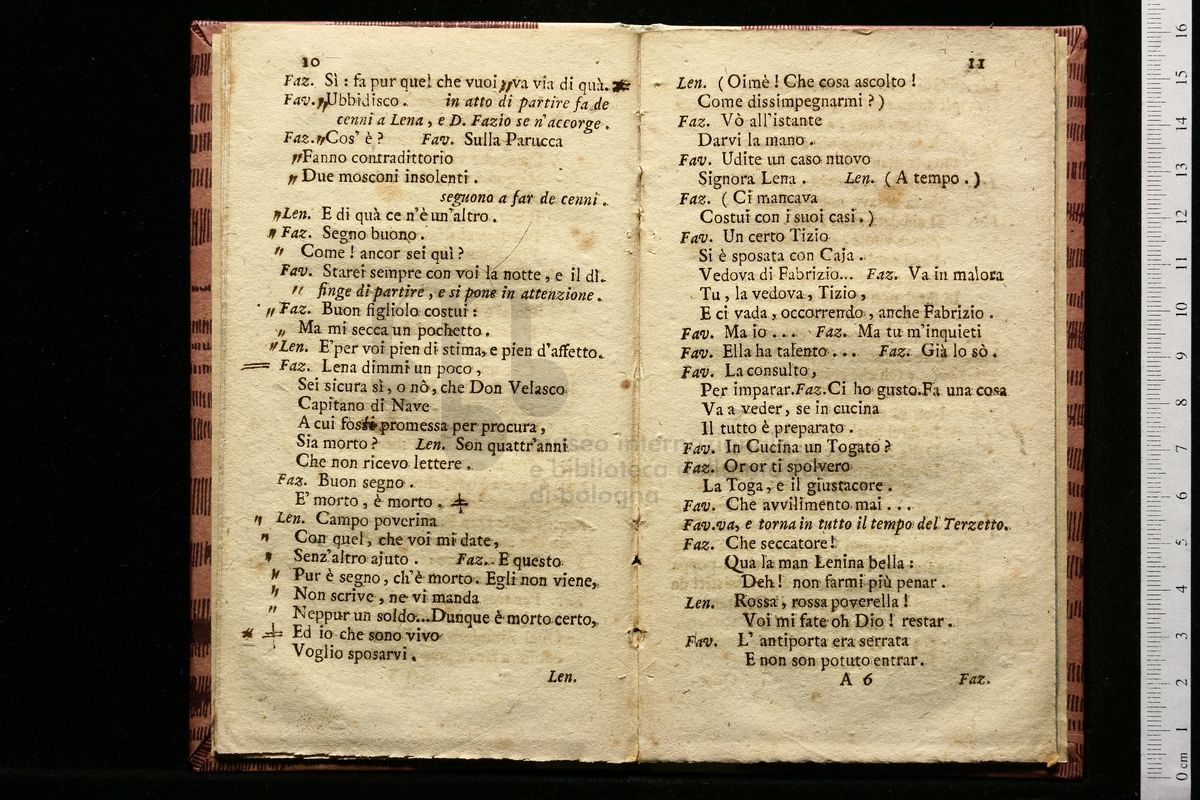 10
Faz. Sì : fa pur quel che vuoi „ va via di quà.
Fav. „ Ubbidisco . in atto di partire fa de
cenni a Lena , e D. Fazio se n'accorge .
Faz. „ Cos' è ? Fav. Sulla Parucca
„ Fanno contradittorio
„ Due mosconi insolenti .
seguono a far de cenni .
„ Len. E di quà ce n'è un'altro .
„ Faz. Segno buono .
„ Come ! ancor sei quì ?
Fav. Starei sempre con voi la notte , e il dì.
„ finge di partire , e si pone in attenzione .
„ Faz. Buon figliolo costui :
„ Ma mi secca un pochetto .
„ Len. E' per voi pien di stima, e pien d'affetto.
Faz. Lena dimmi un poco ,
Sei sicura sì , o nò, che Don Velasco
Capitano di Nave
A cui fosti promessa per procura ,
Sia morto ? Len. Son quattr'anni
Che non ricevo lettere .
Faz. Buon segno .
E' morto , è morto .
„ Len. Campo poverina
„ Con quel , che voi mi date ,
„ Senz'altro ajuto . Faz. E questo
„ Pur è segno , ch'è morto. Egli non viene,
„ Non scrive , ne vi manda
„ Neppur un soldo...Dunque è morto certo,
Ed io che sono vivo
Voglio sposarvi .
Len.
11
Len. ( Oimè ! Che cosa ascolto !
Come dissimpegnarmi ? )
Faz. Vò all'istante
Darvi la mano .
Fav. Udite un caso nuovo
Signora Lena . Len. ( A tempo . )
Faz. ( Ci mancava
Costui con i suoi casi . )
Fav. Un certo Tizio
Si è sposata con Caja .
Vedova di Fabrizio... Faz. Va in malora
Tu , la vedova , Tizio ,
E ci vada , occorrendo , anche Fabrizio .
Fav. Ma io . . . Faz. Ma tu m'inquieti
Fav. Ella ha talento . . . Faz. Già lo sò .
Fav. La consulto ,
Per imparar. Faz. Ci ho gusto. Fa una cosa
Va a veder , se in cucina
Il tutto è preparato .
Fav. In Cucina un Togato ?
Faz. Or or ti spolvero
La Toga , e il giustacore .
Fav. Che avvilimento mai . . .
Fav. va, e torna in tutto il tempo del Terzetto.
Faz. Che seccatore !
Qua la man Lenina bella :
Deh ! non farmi più penar .
Len. Rossa , rossa poverella !
Voi mi fate oh Dio ! restar .
Fav. L' antiporta era serrata
E non son potuto entrar .
A 6 Faz.